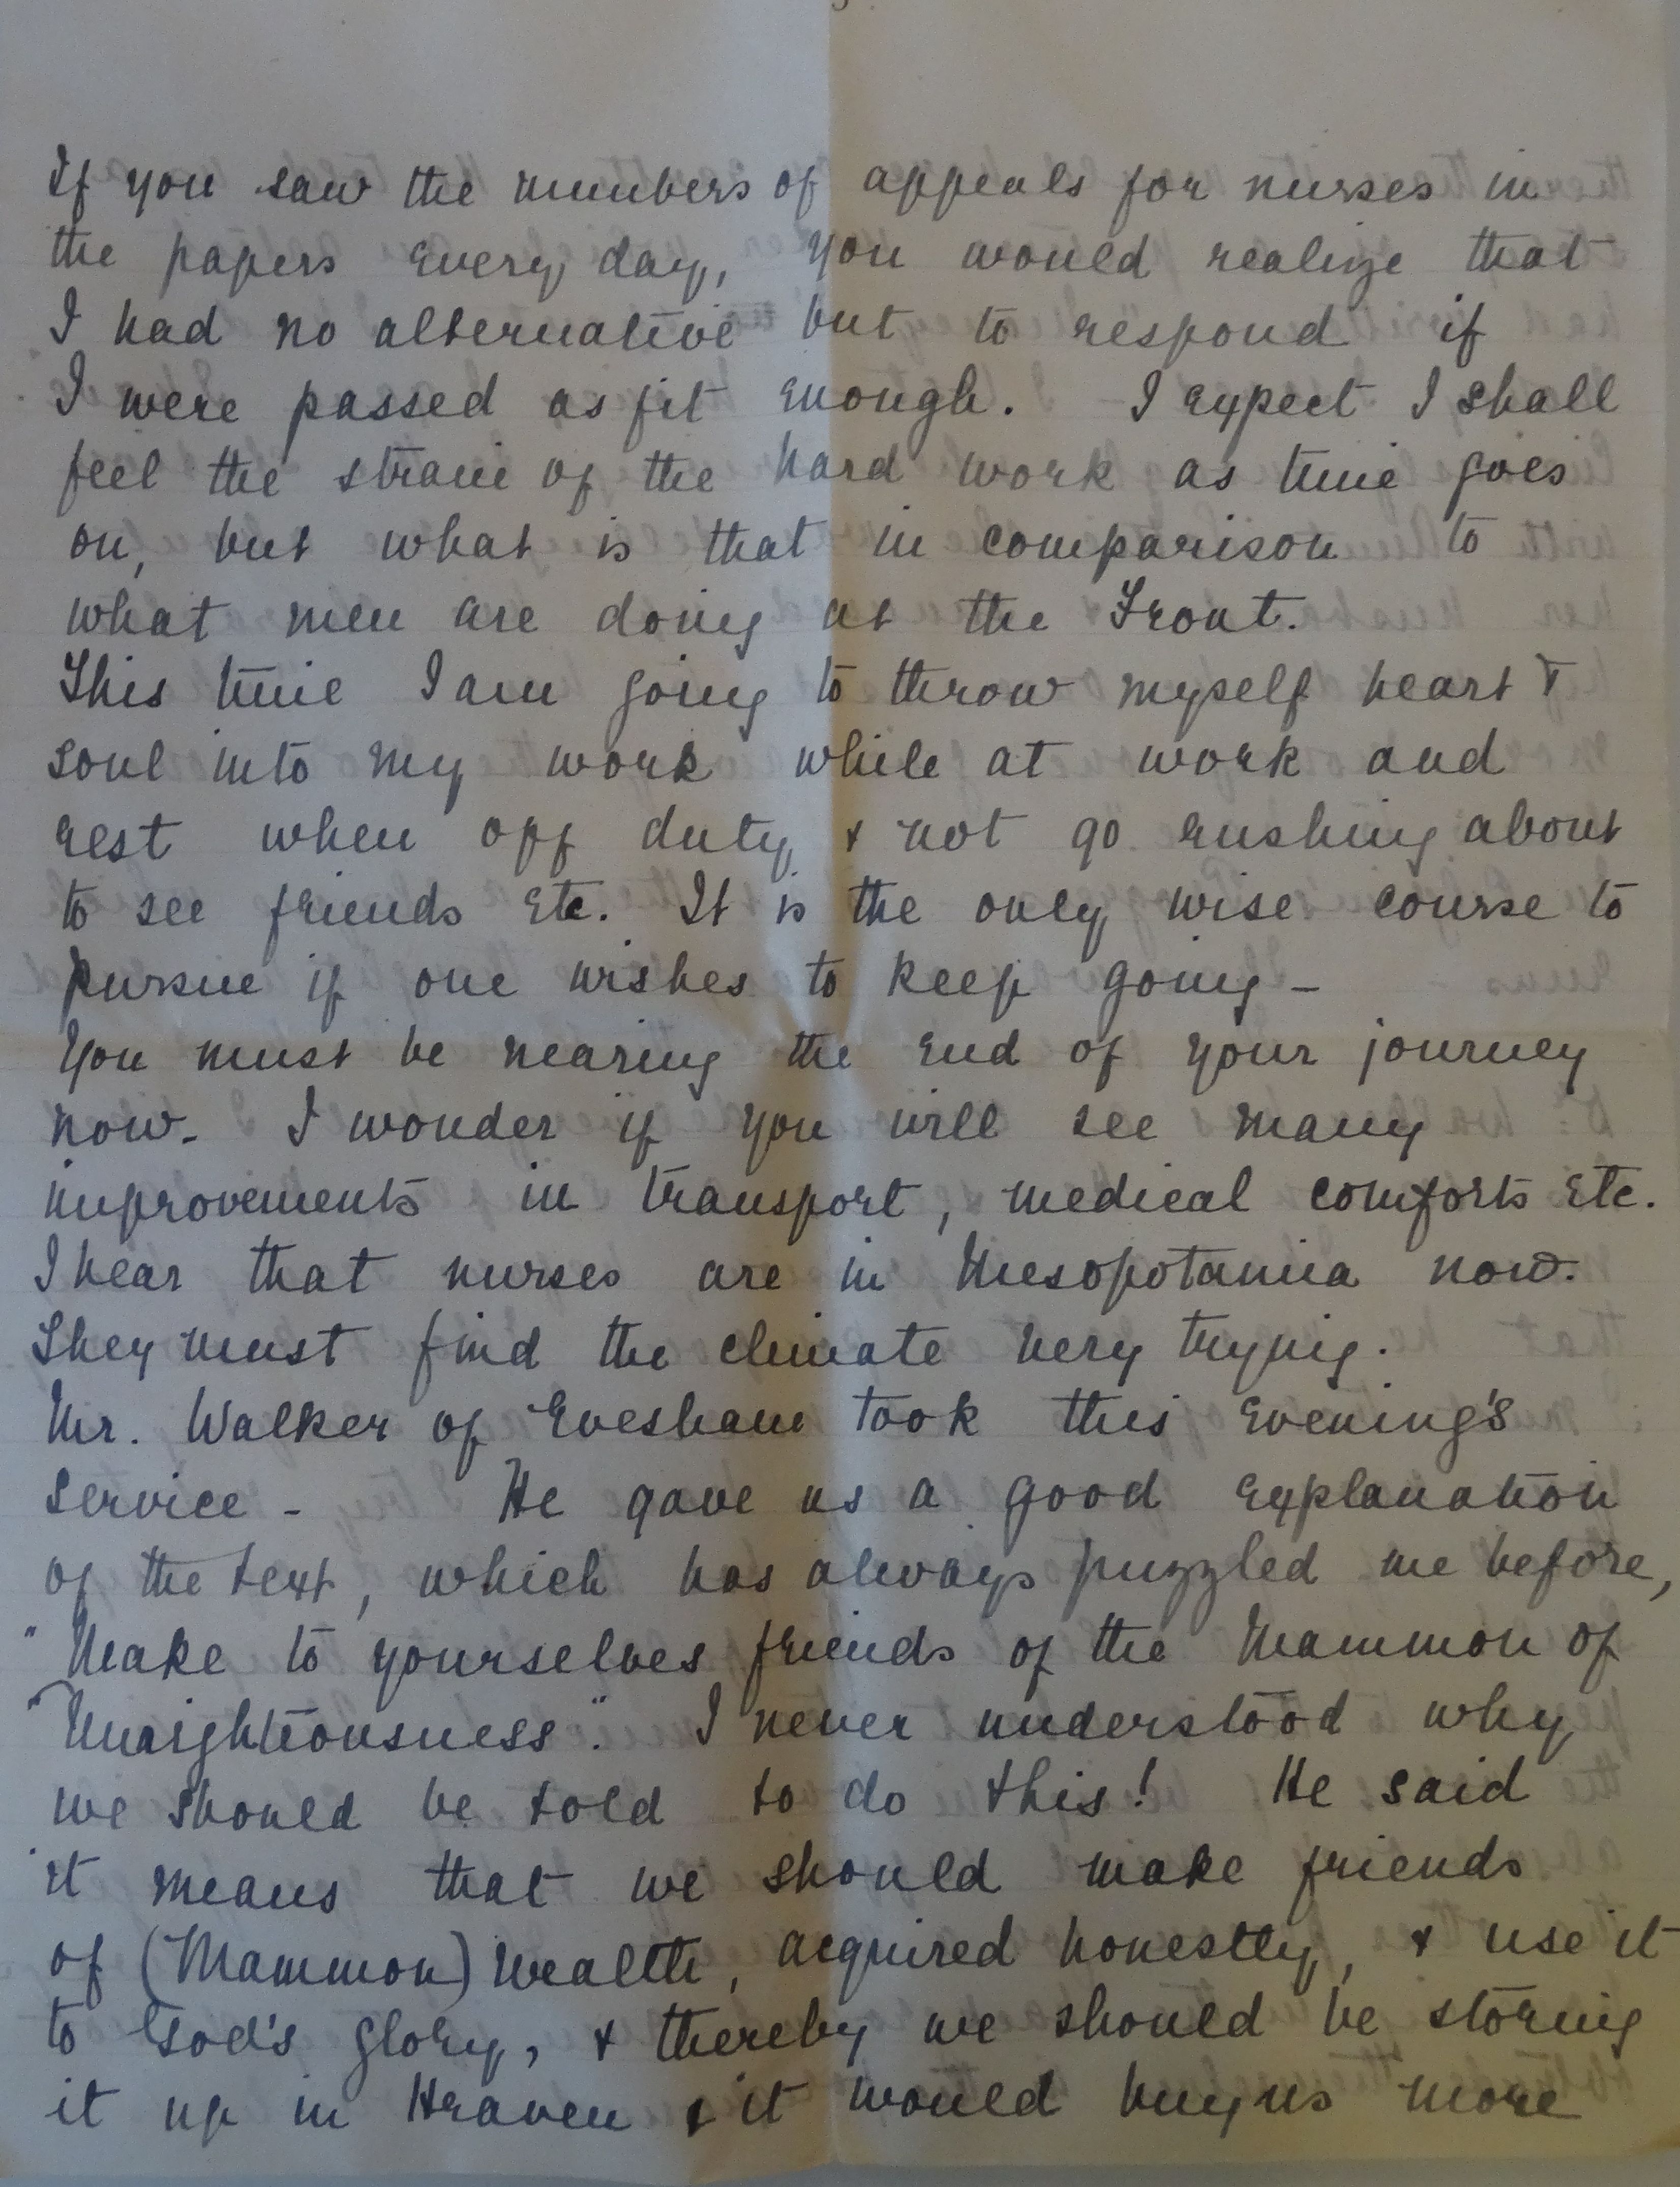 If you saw the numbers of appeals for nurses in
the papers every day, you would realize that
I had no alternative but to respond if
I were passed as fit enough. I expect I shall
feel the strain of the hard work as time goes
on, but what is that in comparison to
what men are doing at the Front.
This time I am going to throw myself heart &
soul into my work while at work and
rest when off duty & not go rushing about
to see friends etc. It is the only wise course to
pursue if one wishes to keep going -
You must be nearing the end of your journey
now. I wonder if you will see many
improvements in transport, medical comforts etc.
I hear that nurses are in Mesopotamia now.
They must find the climate very trying.
Mr. Walker of Evesham took this evening's
service - He gave us a good explanation
of the text, which has always puzzled me before,
"Make to yourselves friends of the Mammon of
"Unrightiousness". I never understood why
we should be told to do this! He said
it means that we should make friends
of (Mammon) Wealth, acquired honestly, & use it
to God's glory, & thereby we should be storing
it up in Heaven & it would buy us more